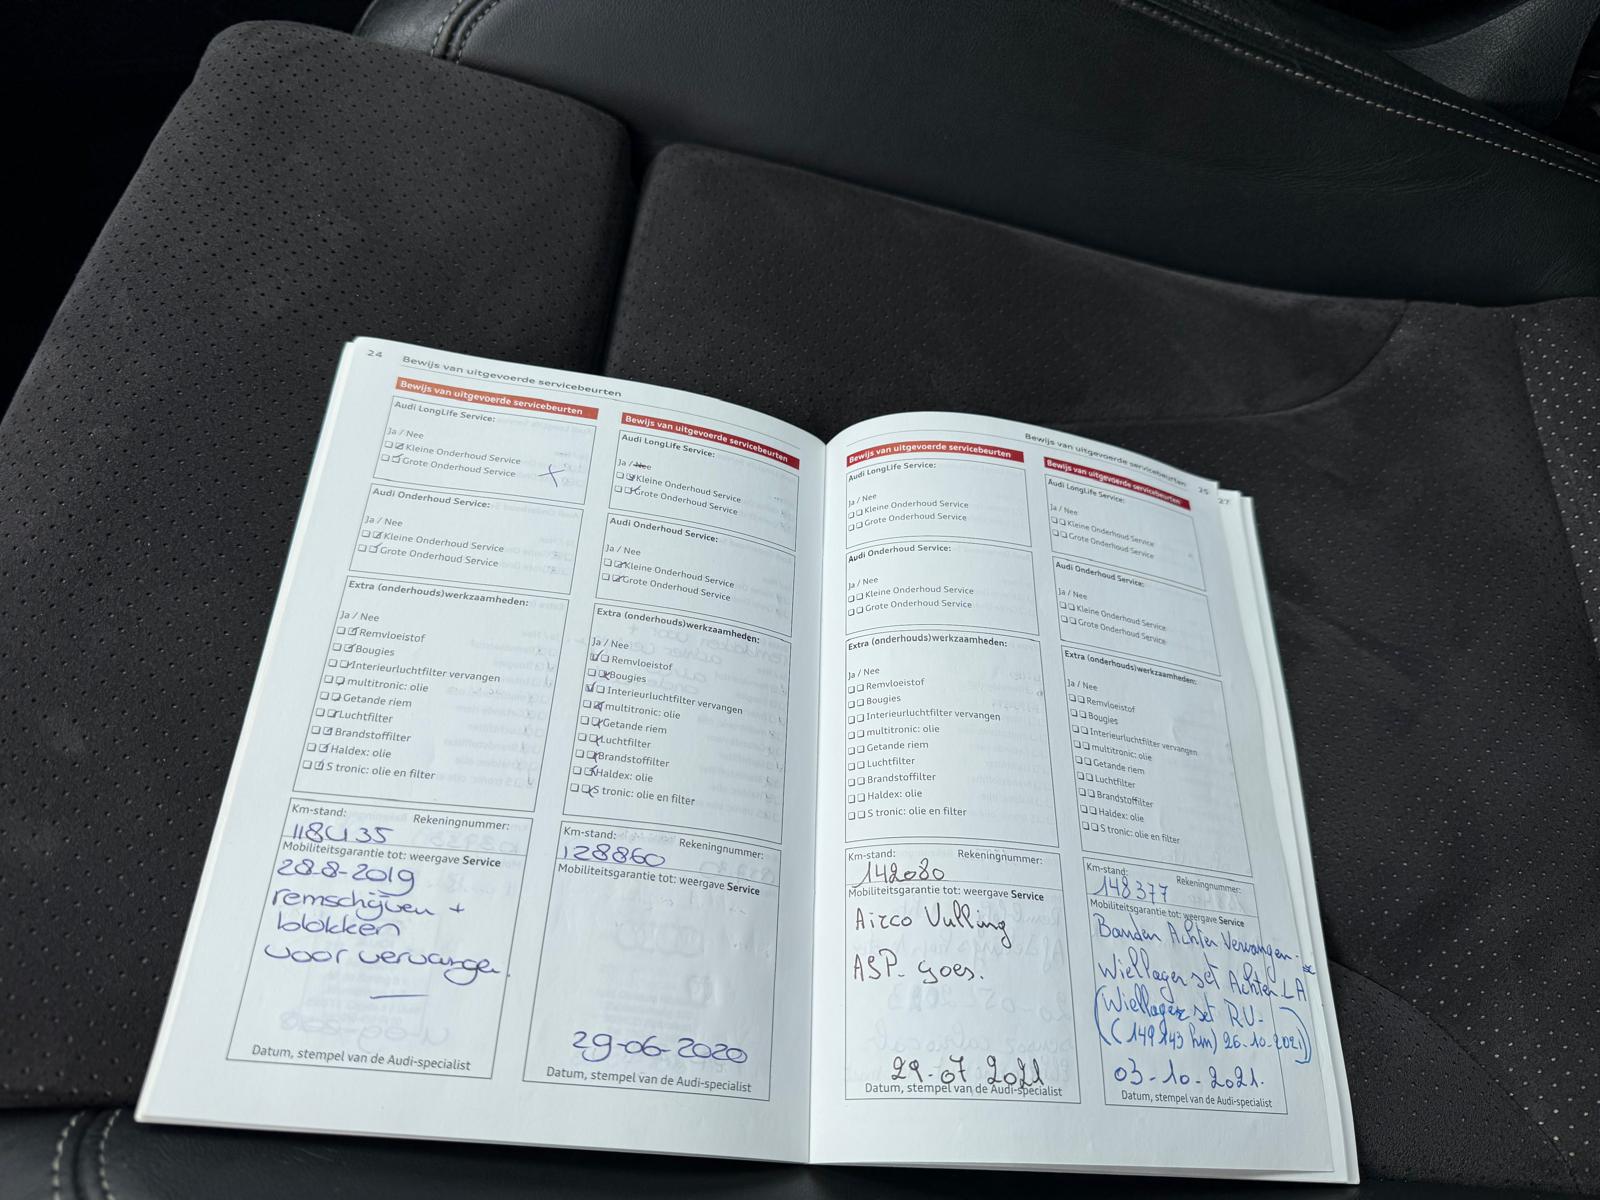 24 Bewijs van uitgevoerde servicebeurten
Bewijs van uitgevoerde servicebeurten
Audi LongLife Service:
Ja / Nee
Kleine Onderhoud Service
Grote Onderhoud Service
Audi Onderhoud Service:
Ja / Nee
Kleine Onderhoud Service
Grote Onderhoud Service
Extra (onderhouds)werkzaamheden:
Ja / Nee
Remvloeistof
Bougies
Interieurluchtfilter vervangen
multitronic: olie
Getande riem
Luchtfilter
Brandstoffilter
Haldex: olie
S tronic: olie en filter
Km-stand: Rekeningnummer:
118435
Mobiliteitsgarantie tot: weergave Service
28-8-2019
remschijven +
blokken
voor vervangen.
Datum, stempel van de Audi-specialist
Bewijs van uitgevoerde servicebeurten
Audi LongLife Service:
Ja / Nee
Kleine Onderhoud Service
Grote Onderhoud Service
Audi Onderhoud Service:
Ja / Nee
Kleine Onderhoud Service
Grote Onderhoud Service
Extra (onderhouds)werkzaamheden:
Ja / Nee
Remvloeistof
Bougies
Interieurluchtfilter vervangen
multitronic: olie
Getande riem
Luchtfilter
Brandstoffilter
Haldex: olie
S tronic: olie en filter
Km-stand: Rekeningnummer:
128860
Mobiliteitsgarantie tot: weergave Service
29-06-2020
Datum, stempel van de Audi-specialist
Bewijs van uitgevoerde servicebeurten 25
27
Bewijs van uitgevoerde servicebeurten
Audi LongLife Service:
Ja / Nee
Kleine Onderhoud Service
Grote Onderhoud Service
Audi Onderhoud Service:
Ja / Nee
Kleine Onderhoud Service
Grote Onderhoud Service
Extra (onderhouds)werkzaamheden:
Ja / Nee
Remvloeistof
Bougies
Interieurluchtfilter vervangen
multitronic: olie
Getande riem
Luchtfilter
Brandstoffilter
Haldex: olie
S tronic: olie en filter
Km-stand: Rekeningnummer:
142080
Mobiliteitsgarantie tot: weergave Service
Airco Vulling
ASP- Goes.
29-07 2021
Datum, stempel van de Audi-specialist
Bewijs van uitgevoerde servicebeurten
Audi LongLife Service:
Ja / Nee
Kleine Onderhoud Service
Grote Onderhoud Service
Audi Onderhoud Service:
Ja / Nee
Kleine Onderhoud Service
Grote Onderhoud Service
Extra (onderhouds)werkzaamheden:
Ja / Nee
Remvloeistof
Bougies
Interieurluchtfilter vervangen
multitronic: olie
Getande riem
Luchtfilter
Brandstoffilter
Haldex: olie
S tronic: olie en filter
Km-stand: Rekeningnummer:
148377
Mobiliteitsgarantie tot: weergave Service
Banden Achter Vervangen.
Wiellager set Achter LA
(Wiellager set RV-
(149143 km) 26-10-2021)
03-10-2021.
Datum, stempel van de Audi-specialist